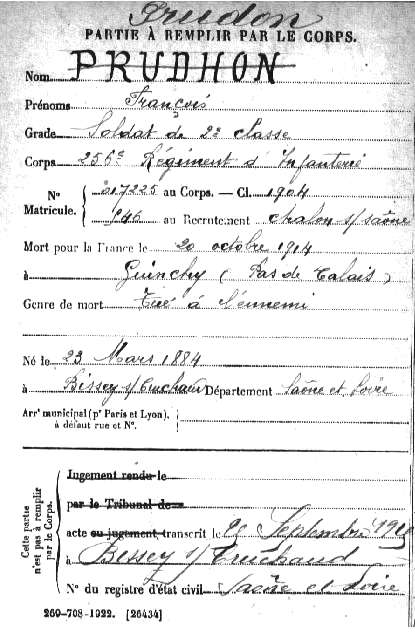 Prudon
PARTIE À REMPLIR PAR LE CORPS.
Nom PRUDHON
Prénoms François
Grade Soldat de 2e classe
Corps 256e Régiment d'Infanterie
N° Matricule. 017225 au Corps. — Cl. 1904
946 au Recrutement Chalon s/Saône
Mort pour la France le 20 octobre 1914
à Guinchy (Pas de Calais)
Genre de mort Tué à l'ennemi
Né le 23 Mars 1884
à Bissey s/Cruchaud Département Saône et Loire
Arr' municipal (p' Paris et Lyon),
à défaut rue et N°.
Cette partie n'est pas à remplir par le Corps.
Jugement rendu le
par le Tribunal de
acte ou jugement transcrit le Septembre
à Bissey s/Cruchaud
N° du registre d'état civil Saône et Loire
260-708-1922. [26434]